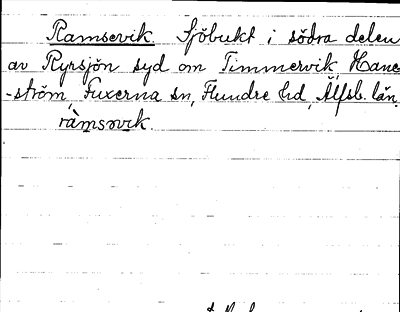 Ramsevik Sjöbukt i södra delen
av Ryrsjön syd om Timmervik, Hane
-ström, Fuxerna sn, Flundre hd, Älfsb. län.
ràmsəvik